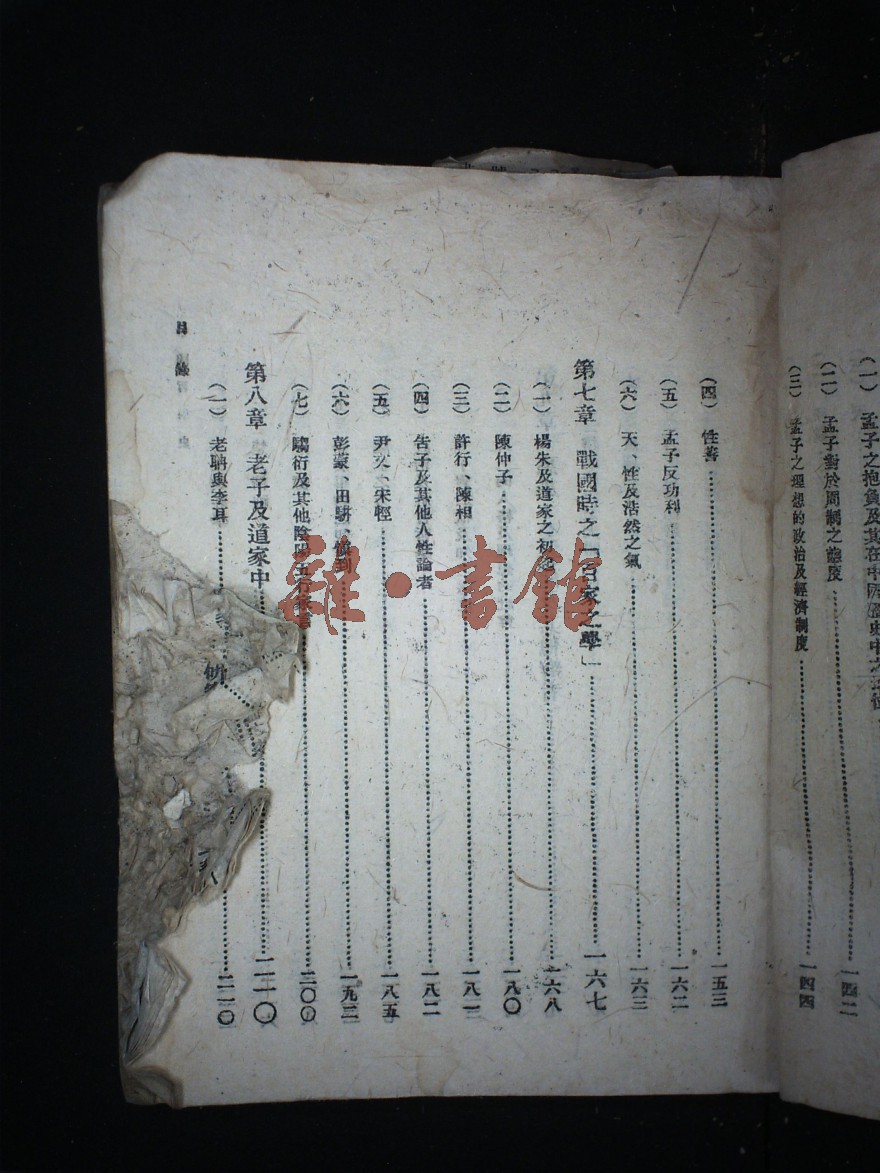 (一) 孟子之抱負及其在中國歷史中之
(二) 孟子對於周制之態度……一四二
(三) 孟子之理想的政治及經濟制度……一四四
(四) 性善……一五三
(五) 孟子反功利……一六二
(六) 天、性及浩然之氣……一六三
第七章 戰國時之「百家之學」……一六七
(一) 楊朱及道家之初……一六八
(二) 陳仲子……一八〇
(三) 許行、陳相……一八一
(四) 告子及其他人性論者……一八二
(五) 尹文、宋輕……一八五
(六) 彭蒙、田駢、慎到……一九二
(七) 騶衍及其他陰陽五行家言……二〇〇
第八章 老子及道家中……二一〇
(一) 老聃與李耳……二一〇
目錄
雜·書館